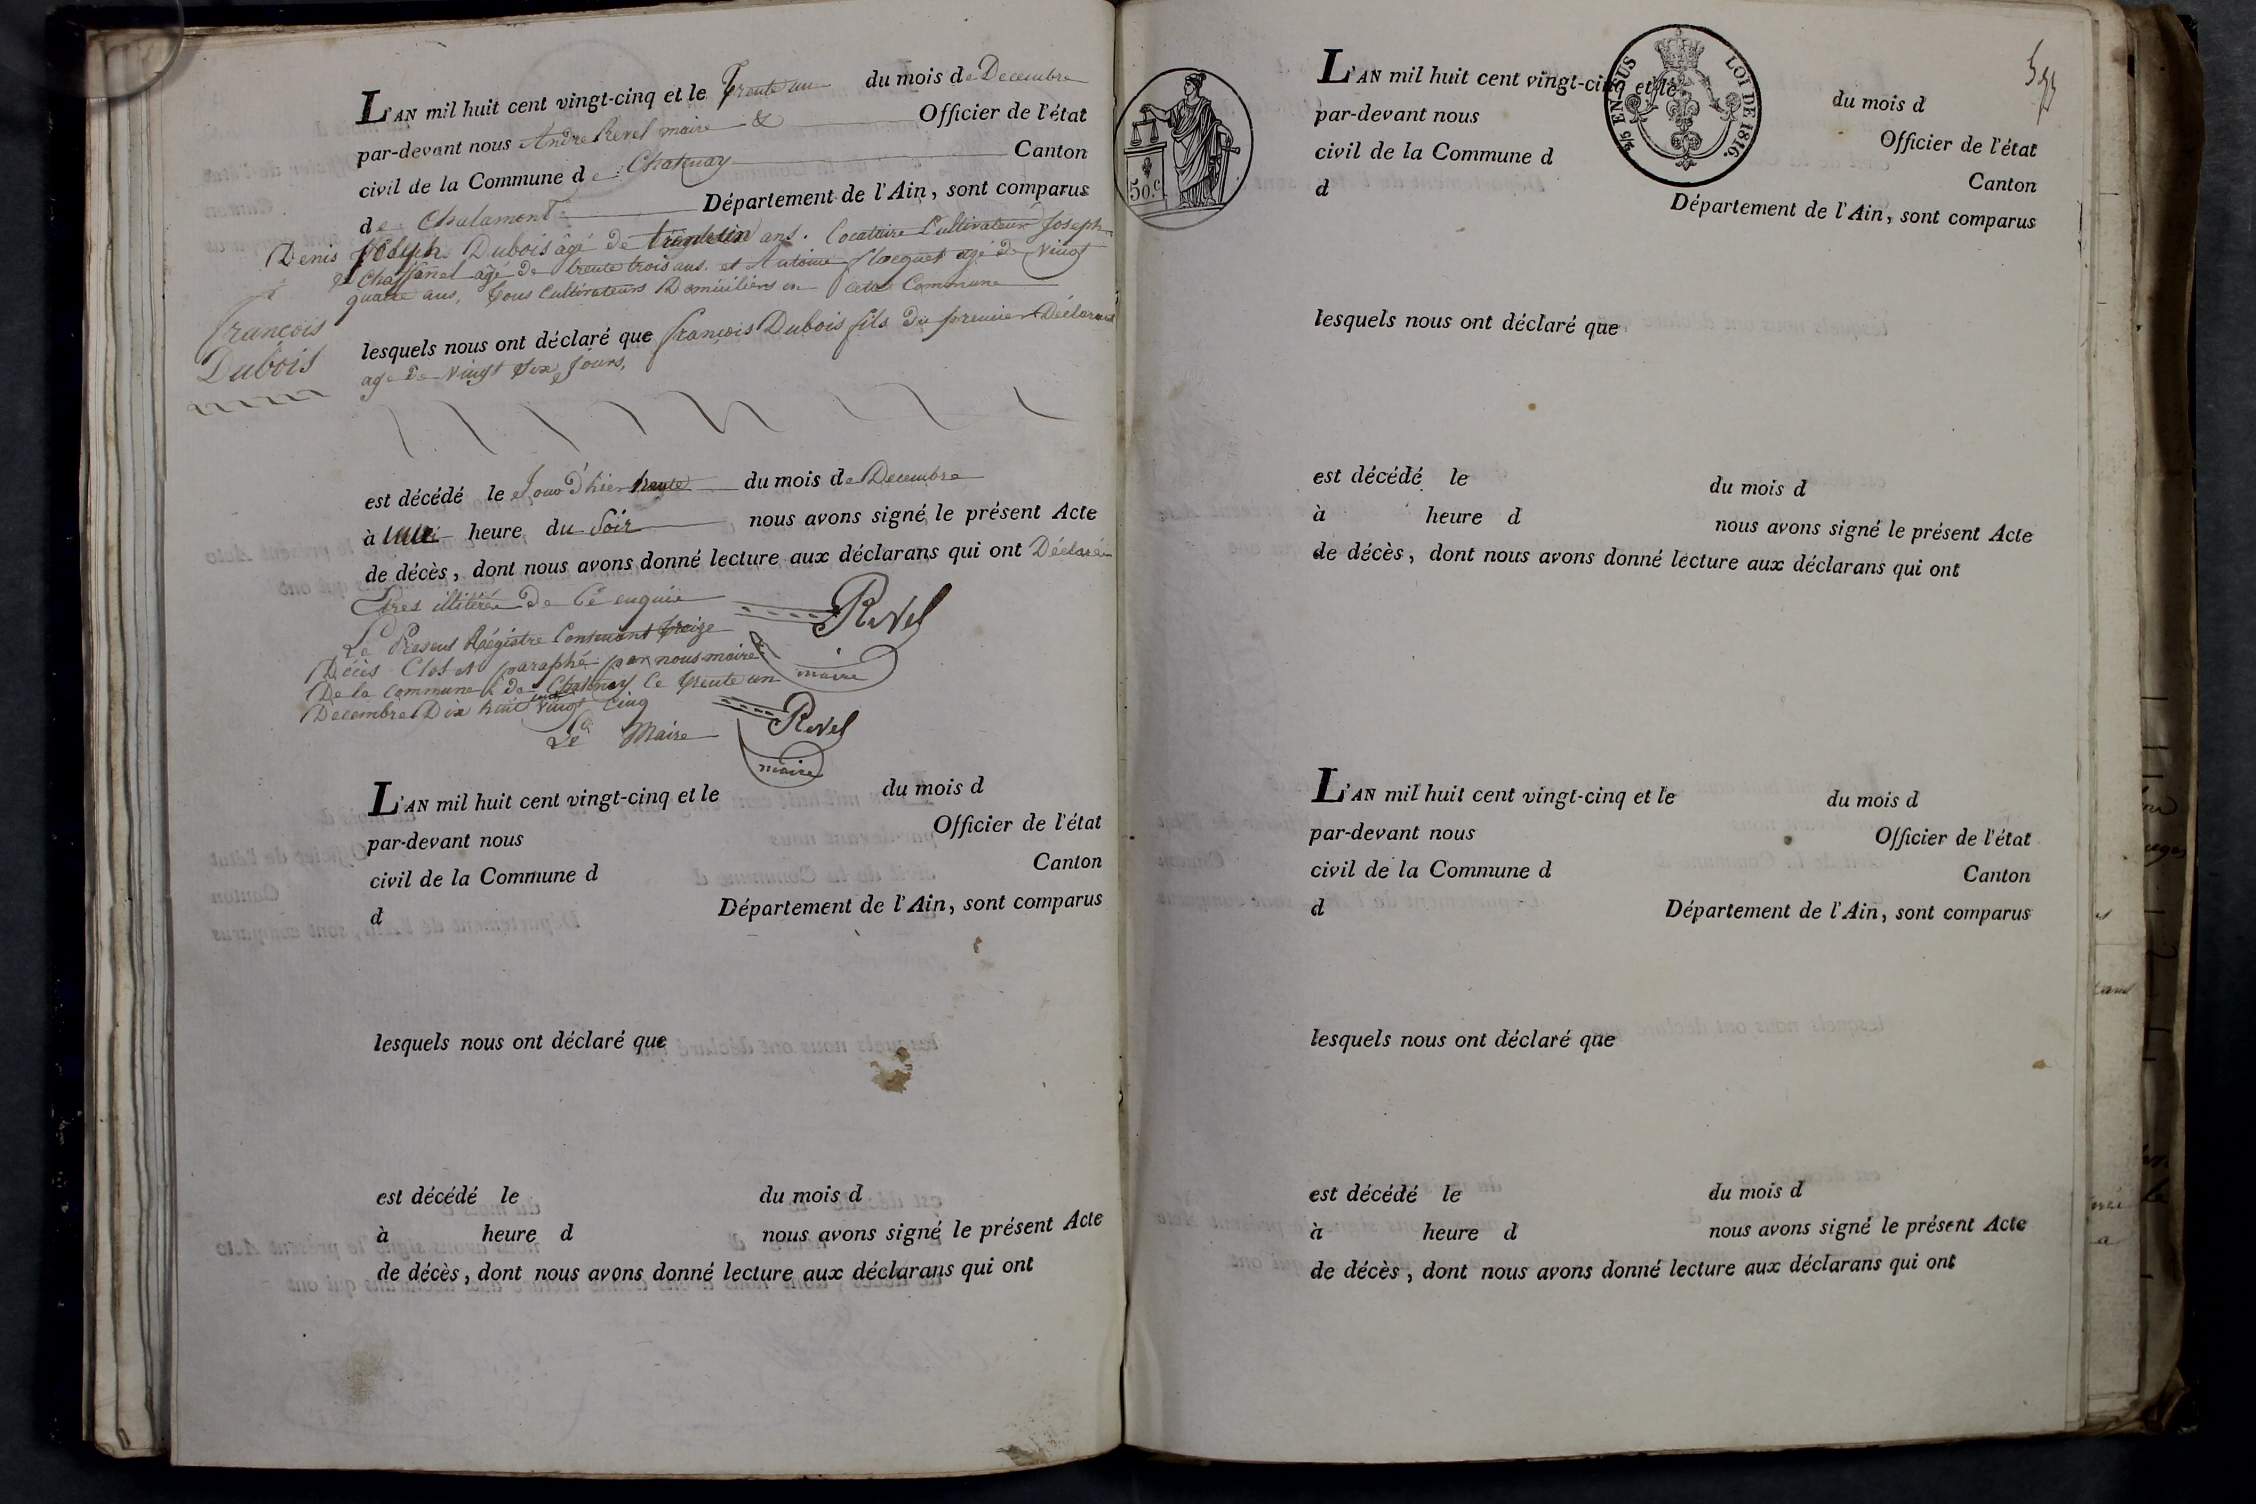 L'AN mil huit cent vingt-cinq et le Trente un du mois de Decembre
par-devant nous André Revel maire & Officier de l'état
civil de la Commune de Chatenay Canton
de Chalamont Département de l'Ain, sont comparus
Denis Joseph Dubois âgé de ans. locataire Cultivateur Joseph
Chaffanel âgé de trente trois ans. et Antoine age de Vingt
quatre ans, tous cultivateurs Domiciliers en Cette Commune
François
Dubois
lesquels nous ont déclaré que François Dubois fils du premier Déclarant
age de Vingt Six Jours,
est décédé le Jour d'hier trente du mois de Decembre
à une heure du Soir nous avons signé le présent Acte
de décès, dont nous avons donné lecture aux déclarans qui ont Déclaré
Etres illitéré de Ce enquis
Revel
maire
Le Present Régistre Contenant treize
Décès Clos et paraphé par nous maire
De la Commune de Chatenay Ce trente un
Decembre Dix huit cent Vingt Cinq
Le Maire
Revel
maire
L'AN mil huit cent vingt-cinq et le du mois d
par-devant nous Officier de l'état
civil de la Commune d Canton
d Département de l'Ain, sont comparus
lesquels nous ont déclaré que
est décédé le du mois d
à heure d nous avons signé le présent Acte
de décès, dont nous avons donné lecture aux déclarans qui ont
50.c
5/5 EN SUS
LOI DE 1816.
L'AN mil huit cent vingt-cinq et le du mois d
par-devant nous Officier de l'état
civil de la Commune d Canton
d Département de l'Ain, sont comparus
lesquels nous ont déclaré que
est décédé le du mois d
à heure d nous avons signé le présent Acte
de décès, dont nous avons donné lecture aux déclarans qui ont
L'AN mil huit cent vingt-cinq et le du mois d
par-devant nous Officier de l'état
civil de la Commune d Canton
d Département de l'Ain, sont comparus
lesquels nous ont déclaré que
est décédé le du mois d
à heure d nous avons signé le présent Acte
de décès, dont nous avons donné lecture aux déclarans qui ont